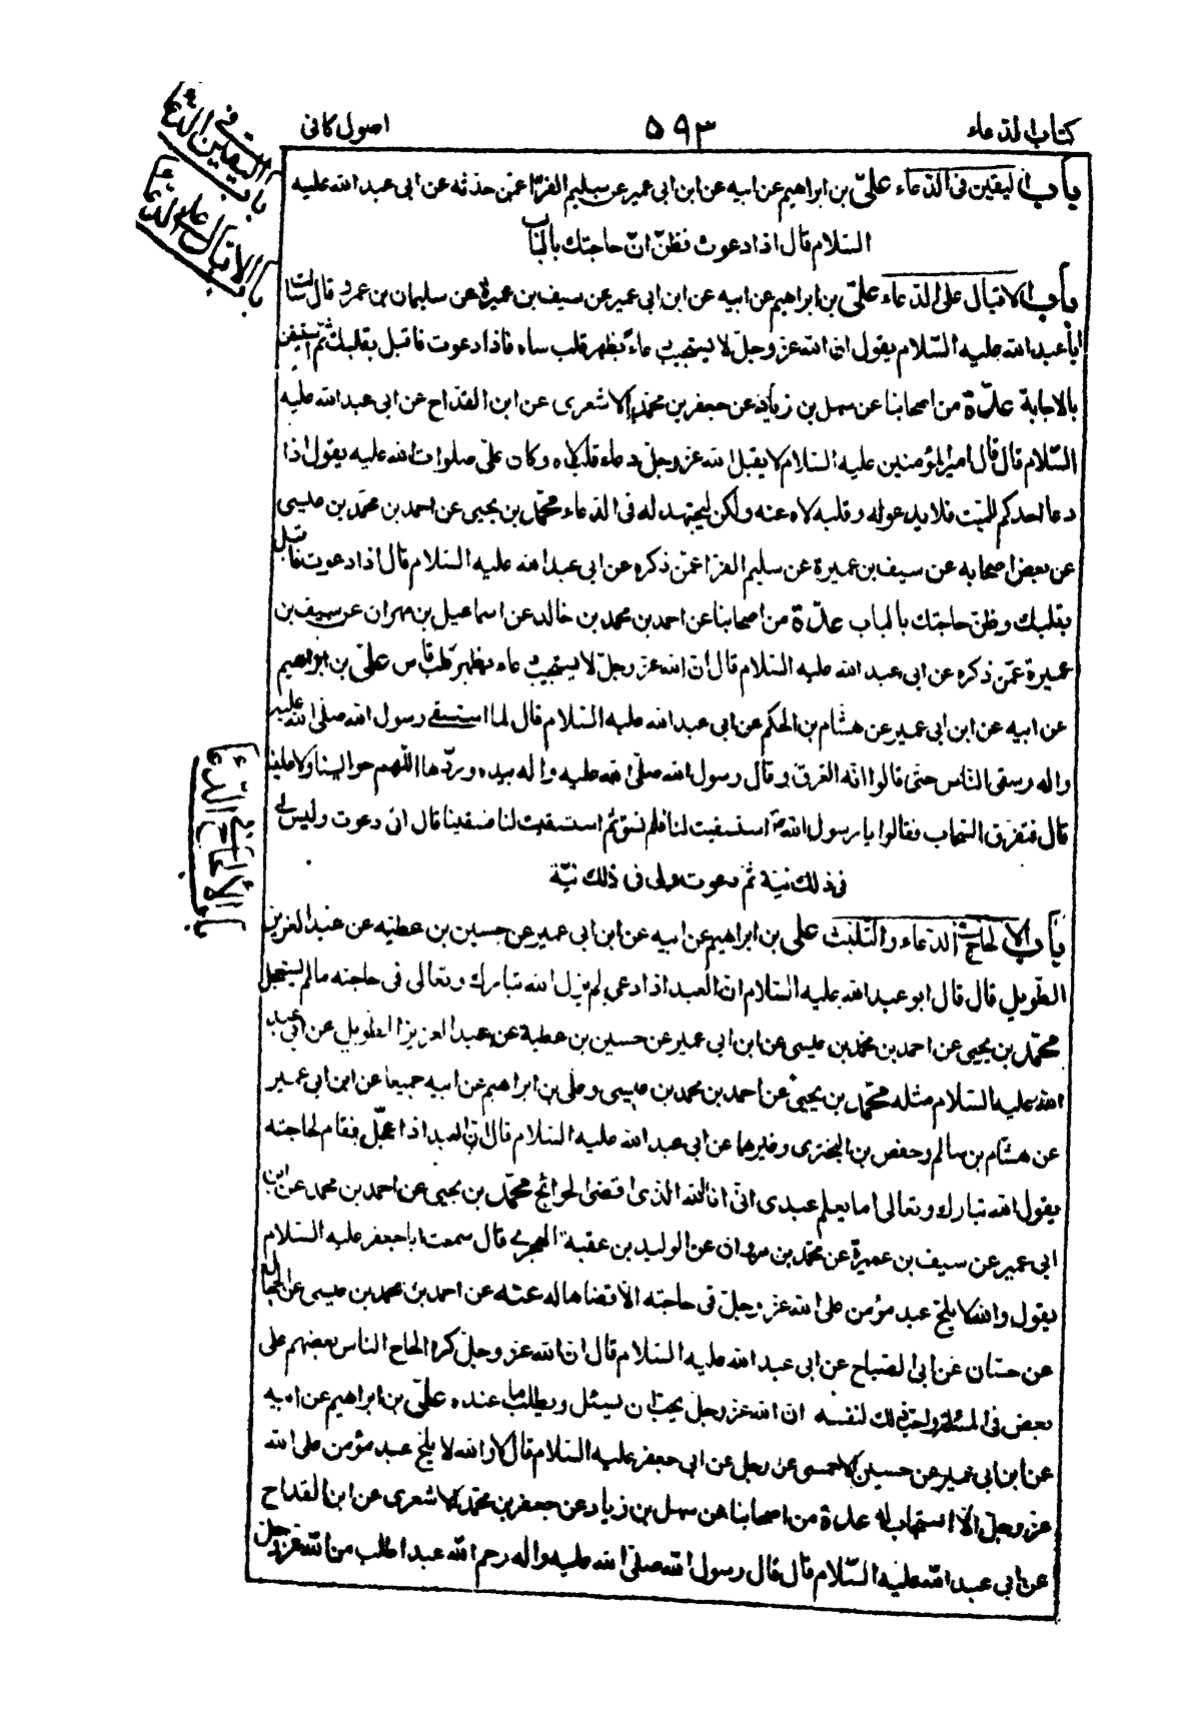 كتاب الدعاء
٥٩٣
اصول كافى
باب اليقين فى الدعاء
باب الاقبال على الدعاء
باب اليقين فى الدعاء علىّ بن ابراهيم عن ابيه عن ابن ابى عمير عن سليم الفرّا عمّن حدثه عن ابى عبد الله عليه
السّلام قال اذا دعوت فظنّ انّ حاجتك بالباب
باب الاقبال على الدعاء علىّ بن ابراهيم عن ابيه عن ابن ابى عمير عن سيف بن عميرة عن سليمان بن عمرو قال سمعت
ابا عبد الله عليه السّلام يقول انّ الله عز وجلّ لا يستجيب دعاءً بظهر قلب ساه فاذا دعوت فاقبل بقلبك ثمّ استيقن
بالاجابة عدّة من اصحابنا عن سهل بن زياد عن جعفر بن محمّد الاشعرى عن ابن القدّاح عن ابى عبد الله عليه
السّلام قال قال امير المؤمنين عليه السّلام لا يقبل الله عز وجلّ دعاء قلب لاه وكان علىّ صلوات الله عليه يقول اذا
دعا احدكم للميّت فلا يدعو له وقلبه لاه عنه ولكن ليجتهد له فى الدعاء محمّد بن يحيى عن احمد بن محمّد بن عيسى
عن بعض اصحابه عن سيف بن عميرة عن سليم الفرّا عمّن ذكره عن ابى عبد الله عليه السّلام قال اذا دعوت فاقبل
بقلبك وظنّ حاجتك بالباب عدّة من اصحابنا عن احمد بن محمد بن خالد عن اسماعيل بن مهران عن سيف بن
عميرة عمّن ذكره عن ابى عبد الله عليه السّلام قال انّ الله عز وجلّ لا يستجيب دعاء بظهر قلب قاس علىّ بن ابراهيم
عن ابيه عن ابن ابى عمير عن هشام بن الحكم عن ابى عبد الله عليه السّلام قال لما استسقى رسول الله صلّى الله عليه
واله وسقى الناس حتى قالوا انّه الغرق وقال رسول الله صلّى الله عليه واله بيده وردّها اللّهم حوالينا ولا علينا
قال فتفرّق السّحاب فقالوا يا رسول الله استسقيت لنا فلم نسق ثم استسقيت لنا فسقينا قال انّى دعوت وليس لى
فى ذلك نيّة ثمّ دعوت ولى فى ذلك نيّة
باب الالحاح فى الدعاء
باب الالحاح فى الدعاء والتلبّث على بن ابراهيم عن ابيه عن ابن ابى عمير عن حسين بن عطيّه عن عبد العزيز
الطّويل قال قال ابو عبد الله عليه السّلام انّ العبد اذا دعى لم يزل الله تبارك وتعالى فى حاجته ما لم يستعجل
محمّد بن يحيى عن احمد بن محمّد بن عيسى عن ابن ابى عمير عن حسين بن عطية عن عبد العزيز الطويل عن ابى عبد
الله عليه السّلام مثله محمّد بن يحيى عن احمد بن محمد بن عيسى وعلى بن ابراهيم عن ابيه جميعا عن ابن ابى عمير
عن هشام بن سالم وحفص بن البخترى وغيرهما عن ابى عبد الله عليه السّلام قال انّ العبد اذا عجّل فقام لحاجته
يقول الله تبارك وتعالى اما يعلم عبدى انّى انا الله الذى اقضى الحوائج محمّد بن يحيى عن احمد بن محمد عن ابن
ابى عمير عن سيف بن عميرة عن محمّد بن مروان عن الوليد بن عقبة الهجرى قال سمعت ابا جعفر عليه السّلام
يقول والله لا يلحّ عبد مؤمن على الله عز وجلّ فى حاجته الّا قضاها له عنه عن احمد بن محمد بن عيسى عن الحجّال
عن حسّان عن ابى الصباح عن ابى عبد الله عليه السّلام قال انّ الله عز وجلّ كره الحاح الناس بعضهم على
بعض فى المسئلة واحبّ ذلك لنفسه ان الله عز وجل يحبّ ان يسئل ويطلب ما عنده علىّ بن ابراهيم عن ابيه
عن ابن ابى عمير عن حسين الاحمسى عن رجل عن ابى جعفر عليه السّلام قال لا والله لا يلحّ عبد مؤمن على الله
عز وجلّ الّا استجاب له عدّة من اصحابنا عن سهل بن زياد عن جعفر بن محمّد الاشعرى عن ابن القداح
عن ابى عبد الله عليه السّلام قال قال رسول الله صلّى الله عليه واله رحم الله عبدا طلب من الله عز وجل